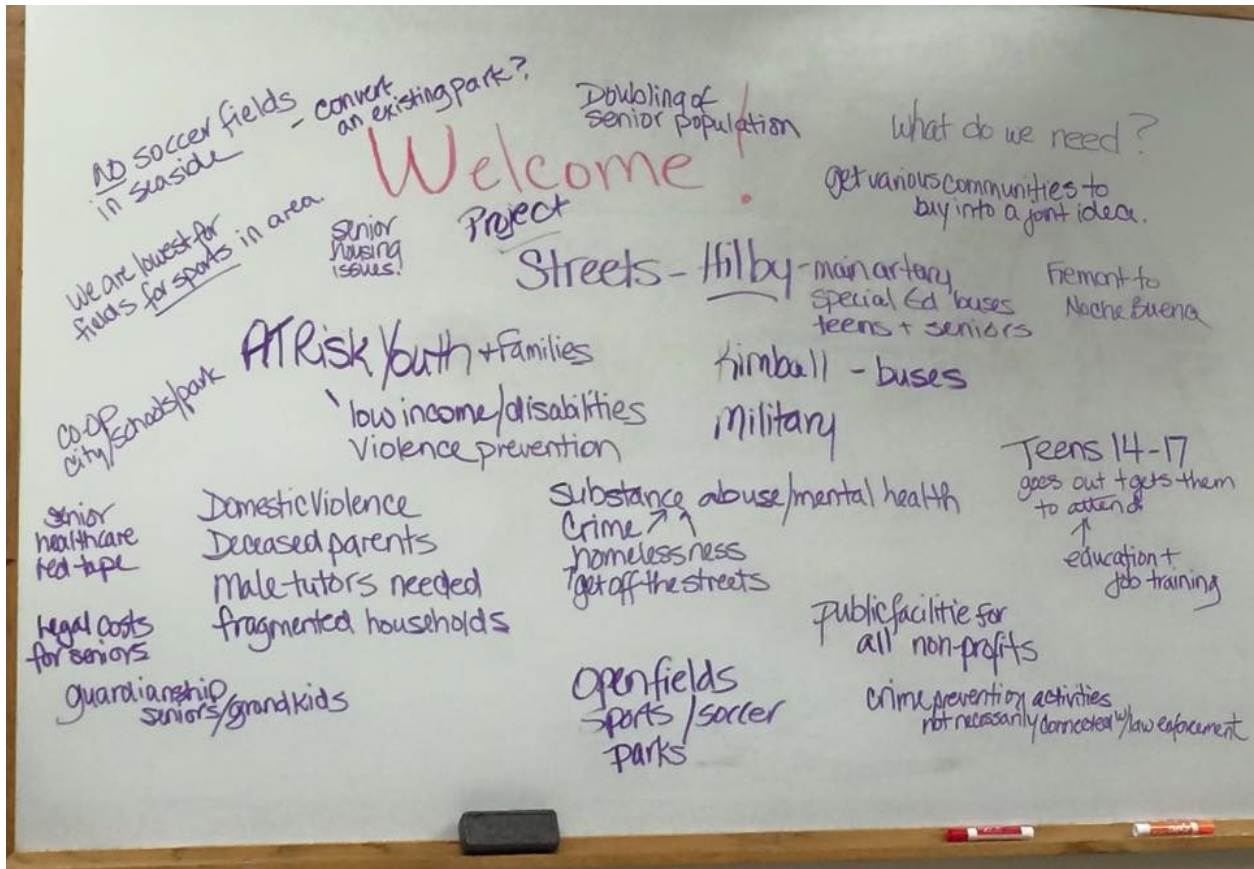 NO soccer fields
in seaside
- convert
an existing park?
Doubling of
senior population
what do we need?
Welcome!
get various communities to
buy into a joint idea.
We are lowest for
fields for sports in area.
senior
housing
issues!
Project
Streets - Hilby - main artery
special Ed buses
teens + seniors
Fremont to
Noche Buena
AT Risk Youth + Families
low income/disabilities
Violence prevention
Kimball - buses
Military
CO-OP
city/schools/park
Teens 14-17
goes out + gets them
to attend.
↑
education +
job training
senior
healthcare
red tape
Domestic Violence
Deceased parents
Male-tutors needed
fragmented households
substance abuse/mental health
Crime ↗ ↑
homelessness
get off the streets
Legal Costs
for seniors
guardianship
seniors/grandkids
public facilitie for
all non-profits
open fields
sports / soccer
parks
crime prevention activities
not necessarily connected w/ law enforcement